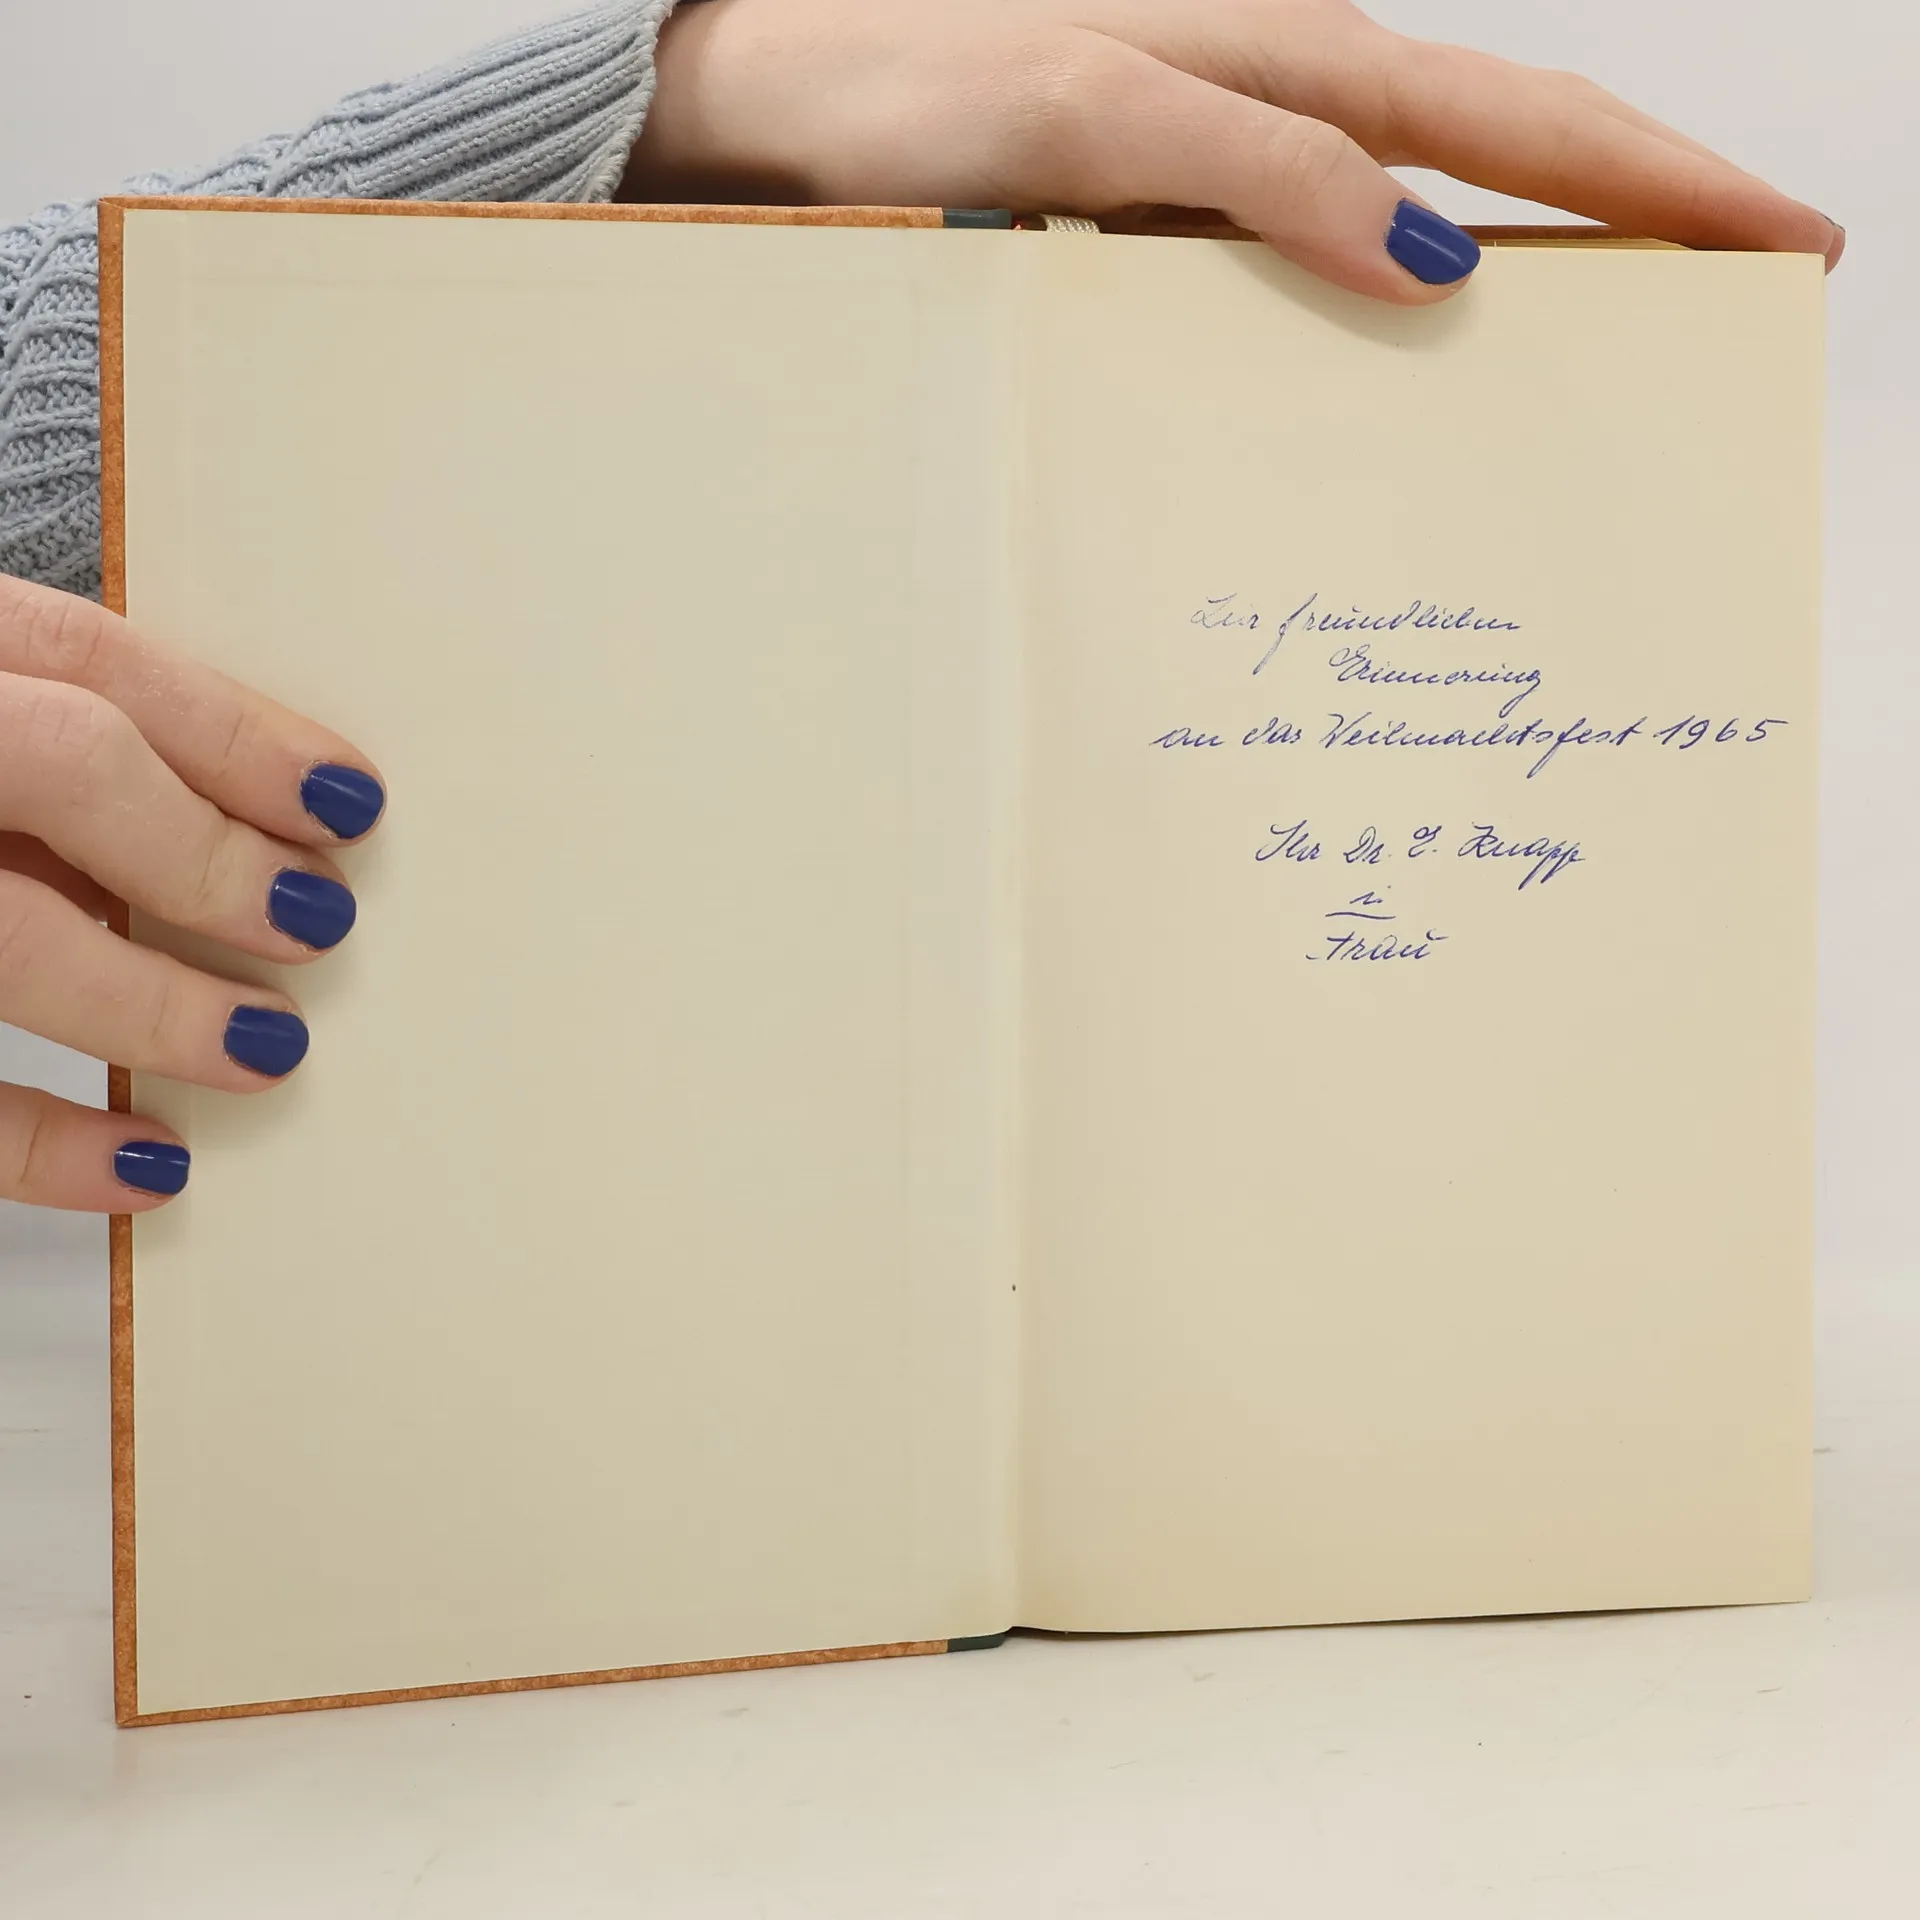 Zur freundlichen
Erinnerung
an das Weihnachtsfest 1965
Ihr Dr. E. Knapp
u.
Frau